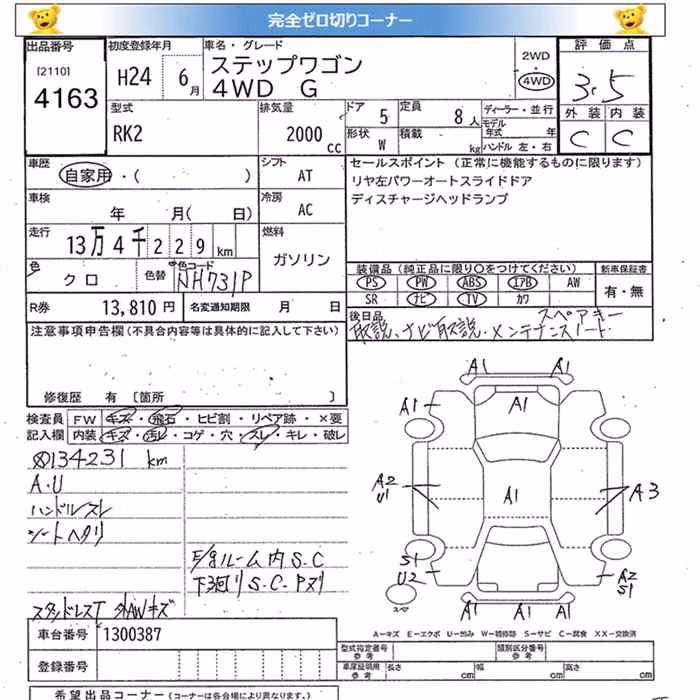 完全ゼロ切りコーナー
出品番号 初度登録年月 車名・グレード 2WD 評価点
[2110] H24 6月 ステップワゴン 4WD 3.5
4163 4WD G
型式 排気量 ドア 5 定員 8人 ディーラー・並行 外装 内装
RK2 2000cc 形状 W 積載 kg モデル年式 年 C C
ハンドル 左・右
車歴 シフト セールスポイント (正常に機能するものに限ります)
自家用・( ) AT リヤ左パワーオートスライドドア
車検 冷房 ディスチャージヘッドランプ
年 月(日) AC
走行 燃料
13万4千229km ガソリン
色 色替 色コード 装備品 (純正品に限り○をつけてください) 新車保証書
クロ NH731P PS PW ABS エアB AW 有・無
R券 13,810円 名変通知期限 月 日 SR ナビ TV カワ
注意事項申告欄 (不具合内容等は具体的に記入して下さい) 後日品 スペアキー
取説、ナビ取説・メンテナンスノート
修復歴 有 [箇所 ]
検査員 FW キズ・飛石・ヒビ割・リペア跡・×要
記入欄 内装 キズ・汚レ・コゲ・穴・スレ・キレ・破レ
134231 km
A.U
ハンドルスレ
シートヘタリ
E/gルーム内 S.C
下廻り S.C.Pヌリ
スタッドレスT 外AWキズ
A1 A1
A1 A1 A1
A2 U1 A1 A3
S1 U2 A2 S1
スペア
A1 A1 A1
A-キズ E-エクボ U-凹み W-補修跡 S-サビ C-腐食 XX-交換済
車台番号 1300387
型式指定番号 類別区分番号
登録番号 車庫証明用参考 長さ cm 幅 cm 高さ cm
希望出品コーナー (コーナーは各会場により異なります。)